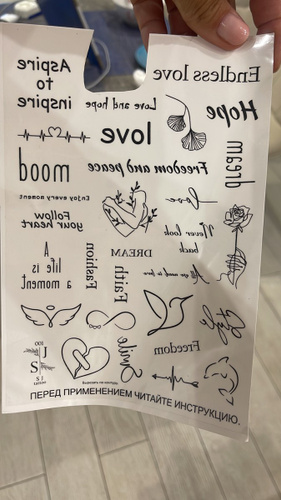 Aspire
to
inspire
Endless love
Love and hope
Hope
love
dream
mood
Freedom and peace
Enjoy every moment
love
Follow
your heart
Never look
back
A
life is
a moment
Fashion
Faith
DREAM
All you need is love
Style
Smile
Freedom
ПЕРЕД ПРИМЕНЕНИЕМ ЧИТАЙТЕ ИНСТРУКЦИЮ.